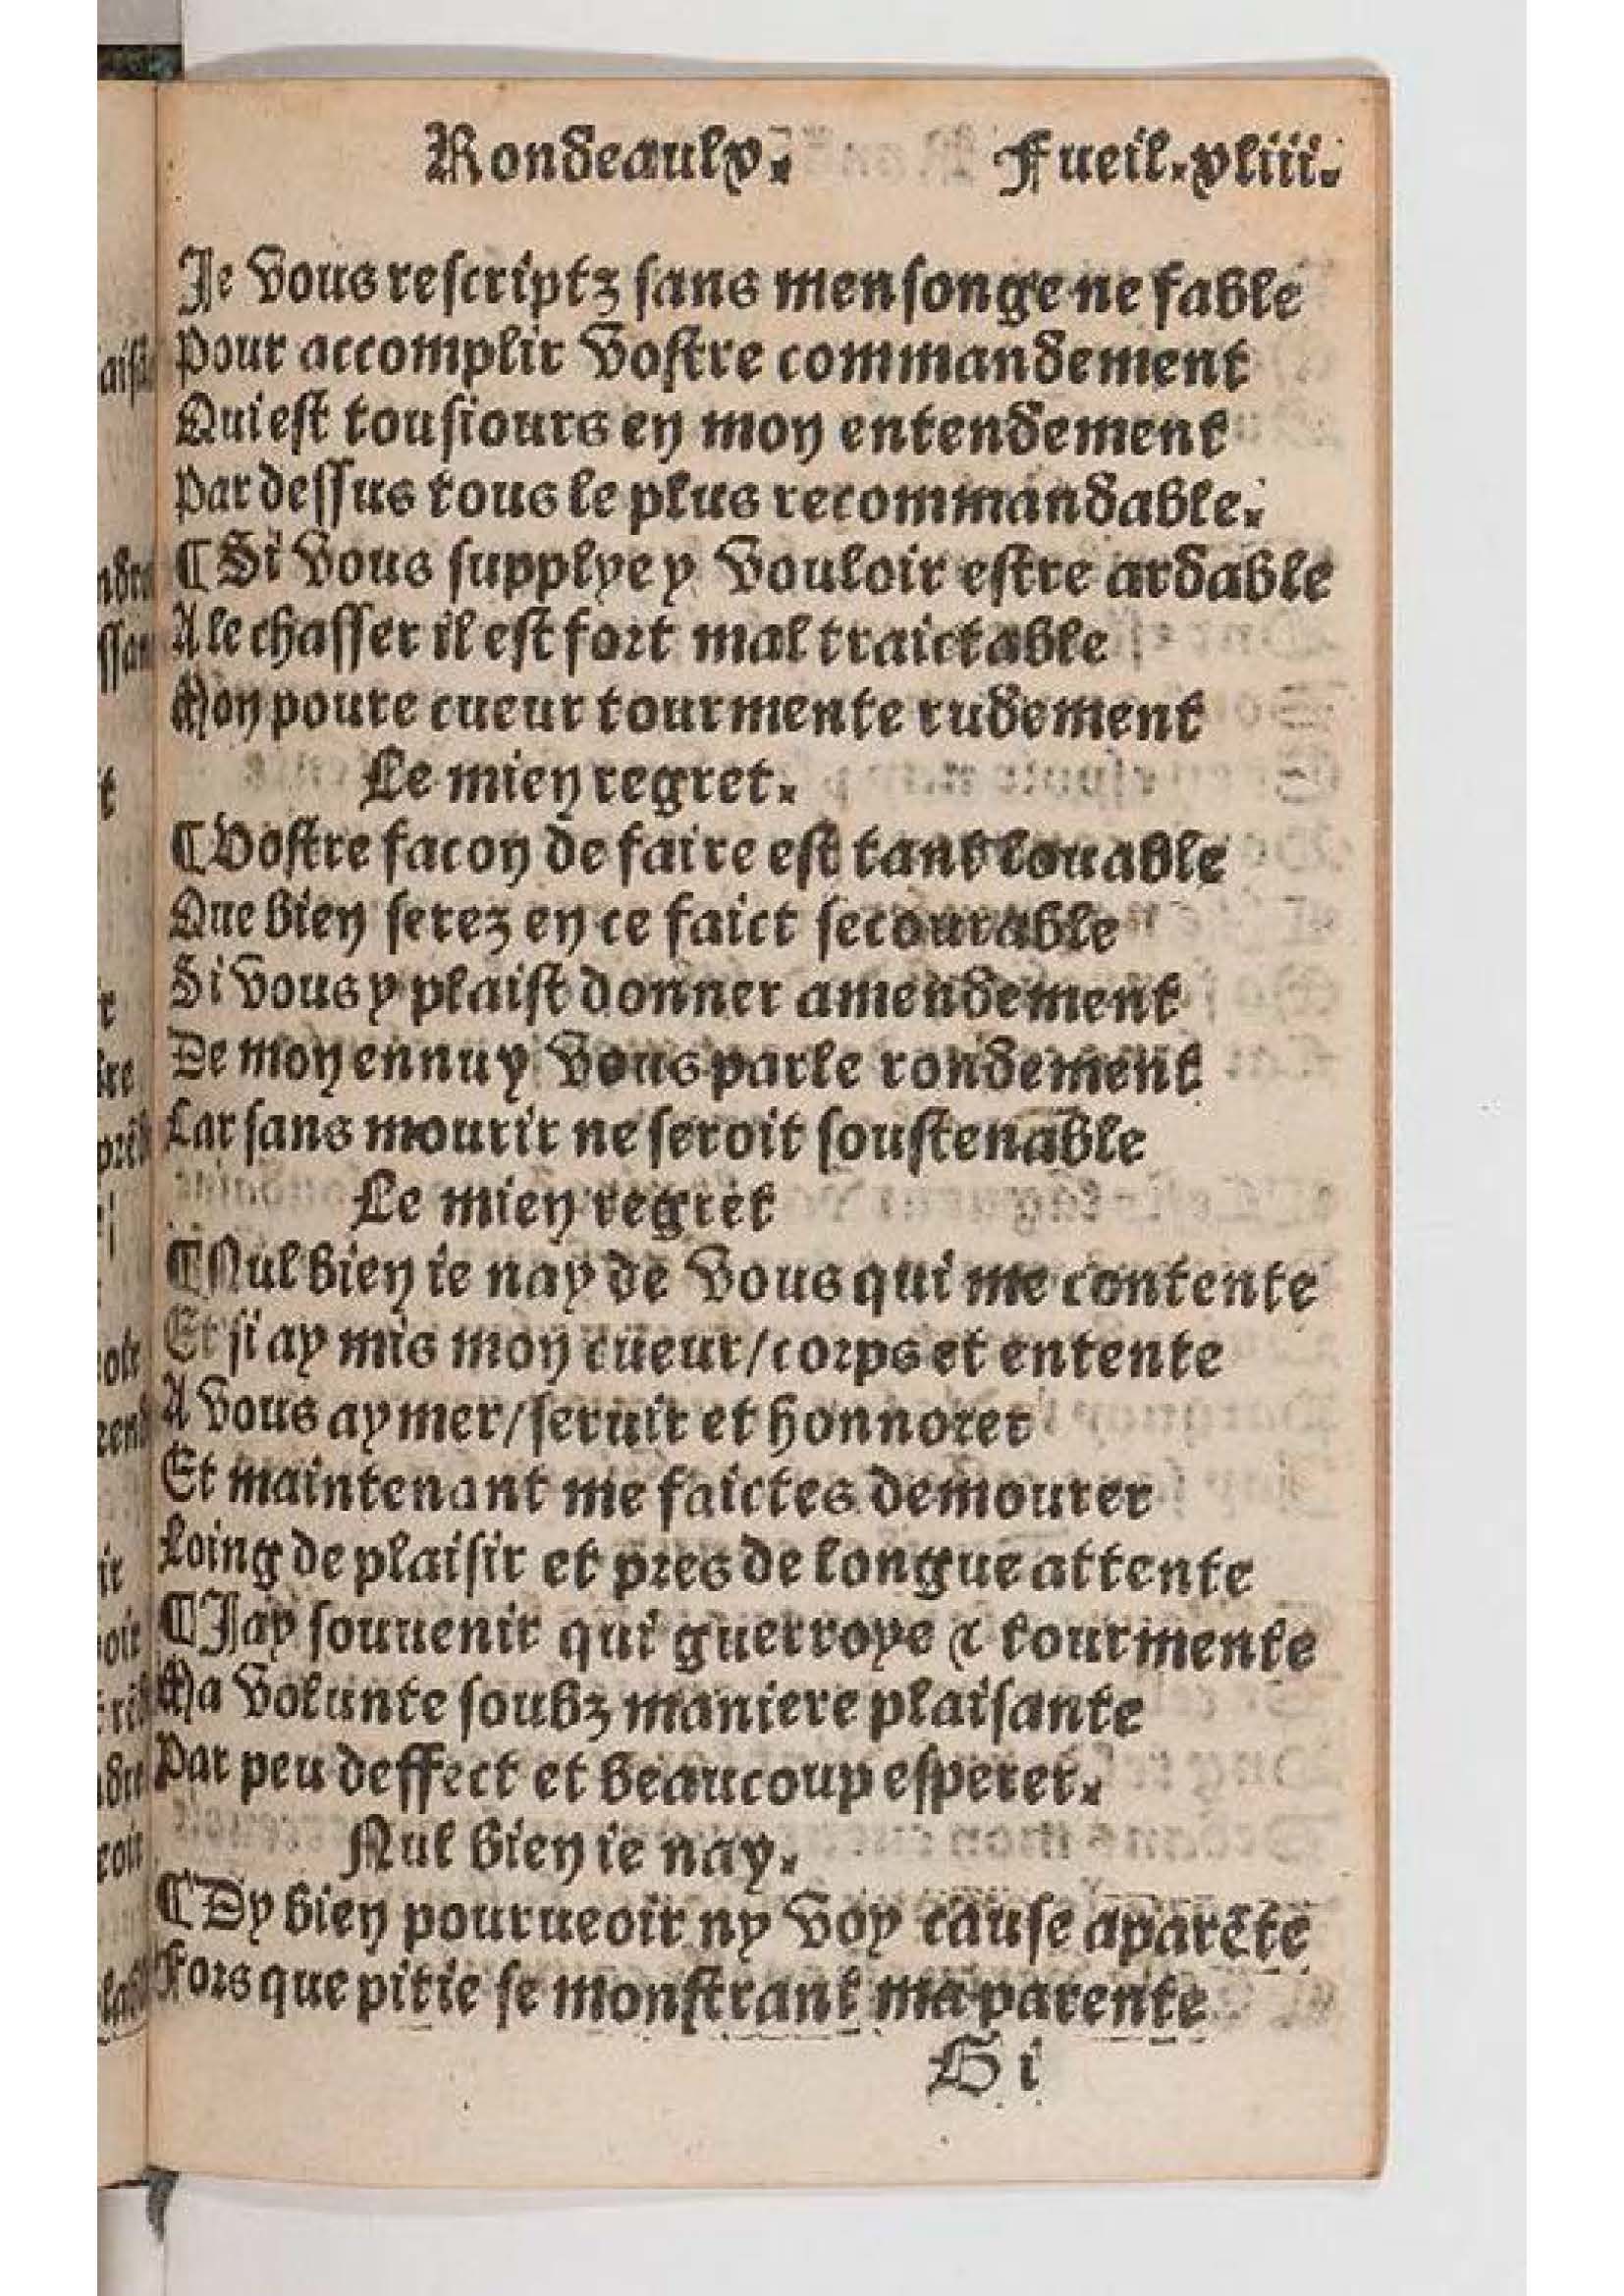 Rondeaulx. Fueil.xliii.
Je vous rescriptz sans mensonge ne fable
Pour accomplir vostre commandement
Qui est tousiours en mon entendement
Par dessus tous le plus recommandable.
¶ Si vous supplye y vouloir estre ardable
A le chasser il est fort mal traictable
Mon poure cueur tourmente rudement
Le mien regret.
¶ Vostre facon de faire est tant louable
Que bien serez en ce faict secourable
Si vous y plaist donner amendement
De mon ennuy vous parle rondement
Car sans mourir ne seroit soustenable
Le mien regret
¶ Nul bien ie nay de vous qui me contente
Et si ay mis mon cueur/corps et entente
A vous aymer/seruir et honnorer
Et maintenant me faictes demourer
Loing de plaisir et pres de longue attente
¶ Jay souuenir qui guerroye & tourmente
Ma volunte soubz maniere plaisante
Par peu deffect et beaucoup esperer.
Nul bien ie nay.
¶ Dy bien pourueoir ny voy cause aparẽte
Fors que pitie se monstrant ma parente
G i